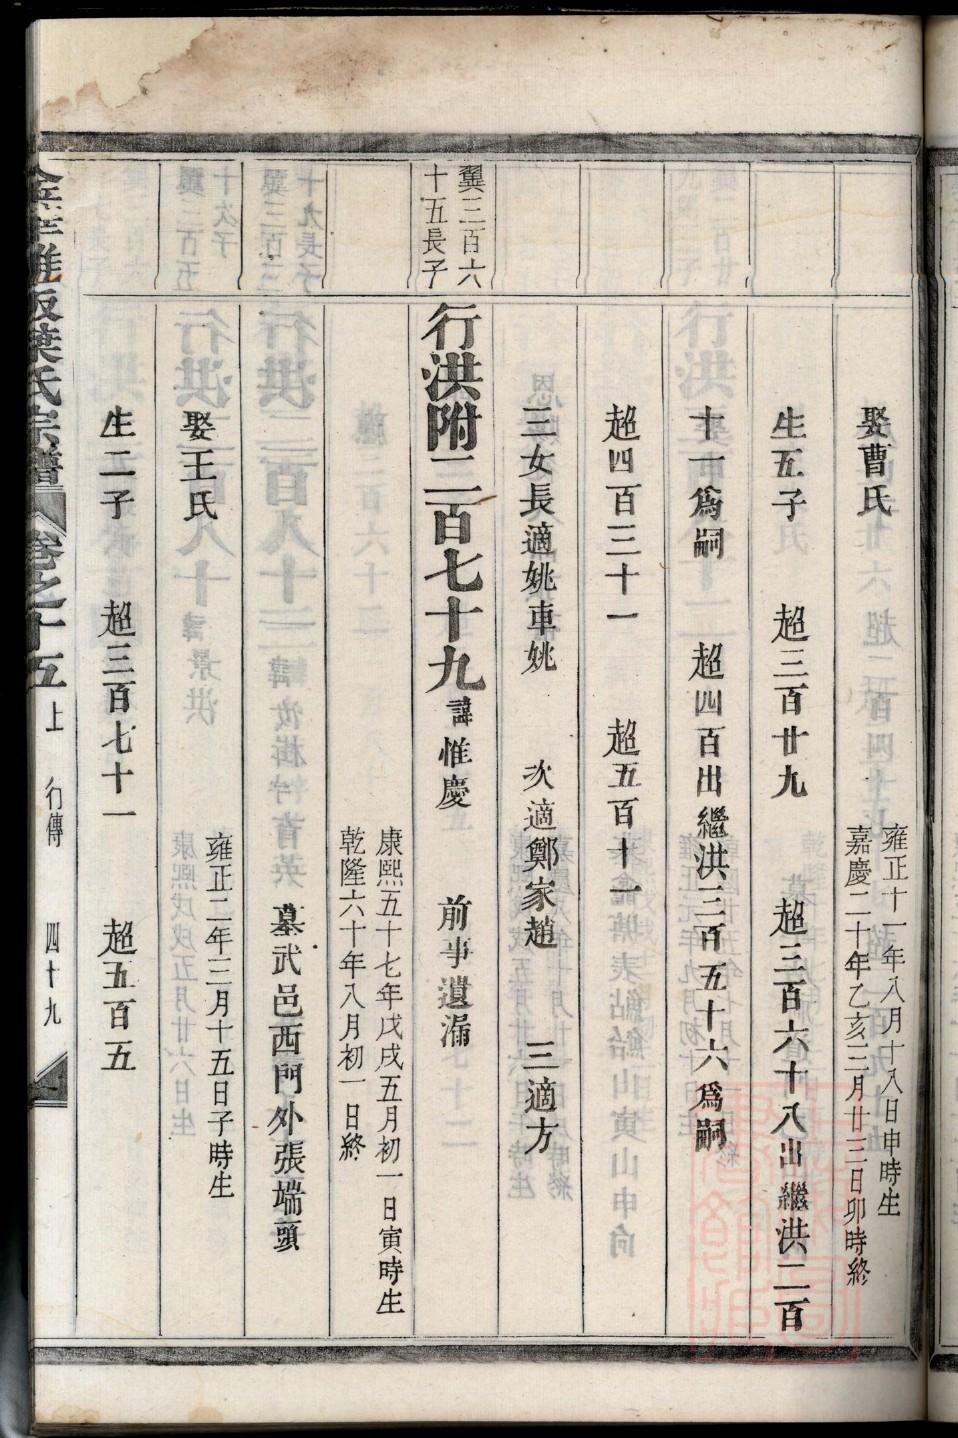 娶曹氏
雍正十一年八月十八日申時生
嘉慶二十年乙亥三月廿三日卯時終
生五子 超三百廿九 超三百六十八出繼洪二百
十一為嗣 超四百出繼洪三百五十六為嗣
超四百三十一 超五百十一
三女長適姚車姚 次適鄭家趙 三適方
翼三百六
十五長子
行洪附二百七十九
諱惟慶 前事遺漏
康熙五十七年戊戌五月初一日寅時生
乾隆六十年八月初一日終
墓武邑西門外張端頭
娶王氏
雍正二年三月十五日子時生
生二子 超三百七十一 超五百五
葉氏宗譜 卷之十五 上 行傳 四十九